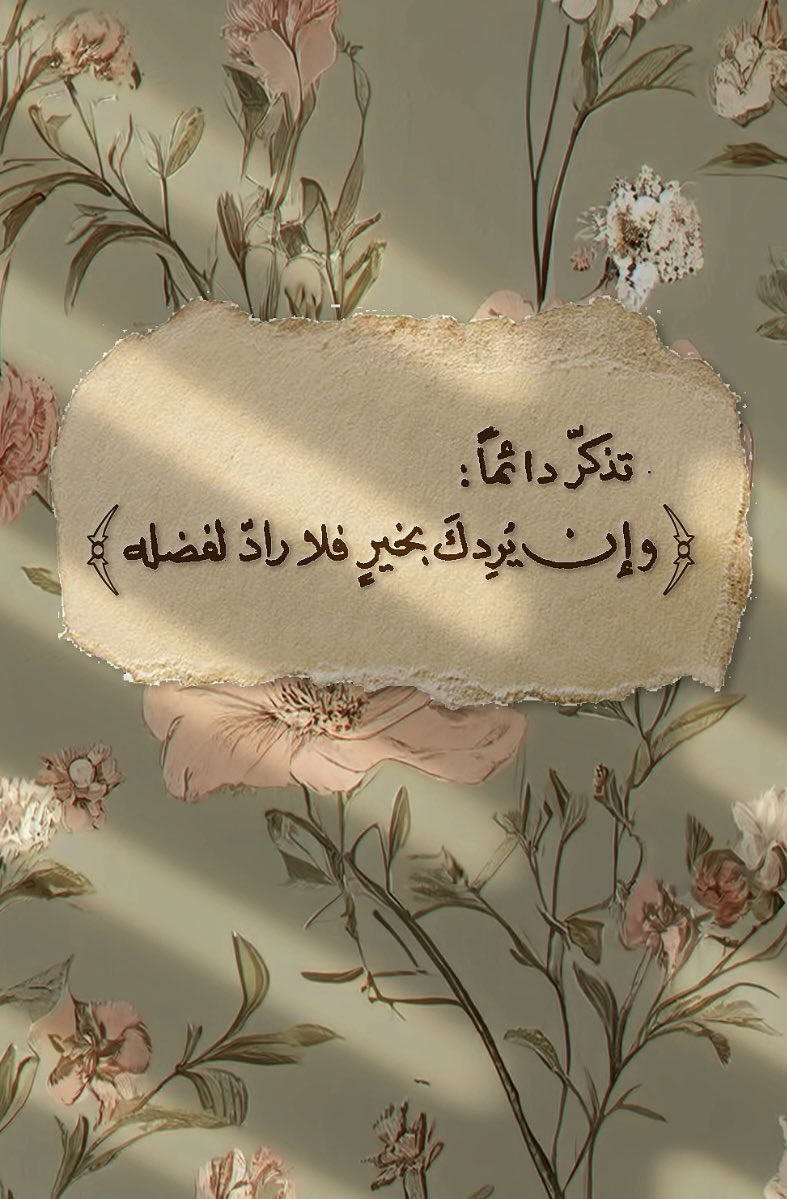 تذكرّ دائماً :
﴿وإن يُرِدكَ بخيرٍ فلا رادّ لفضله﴾